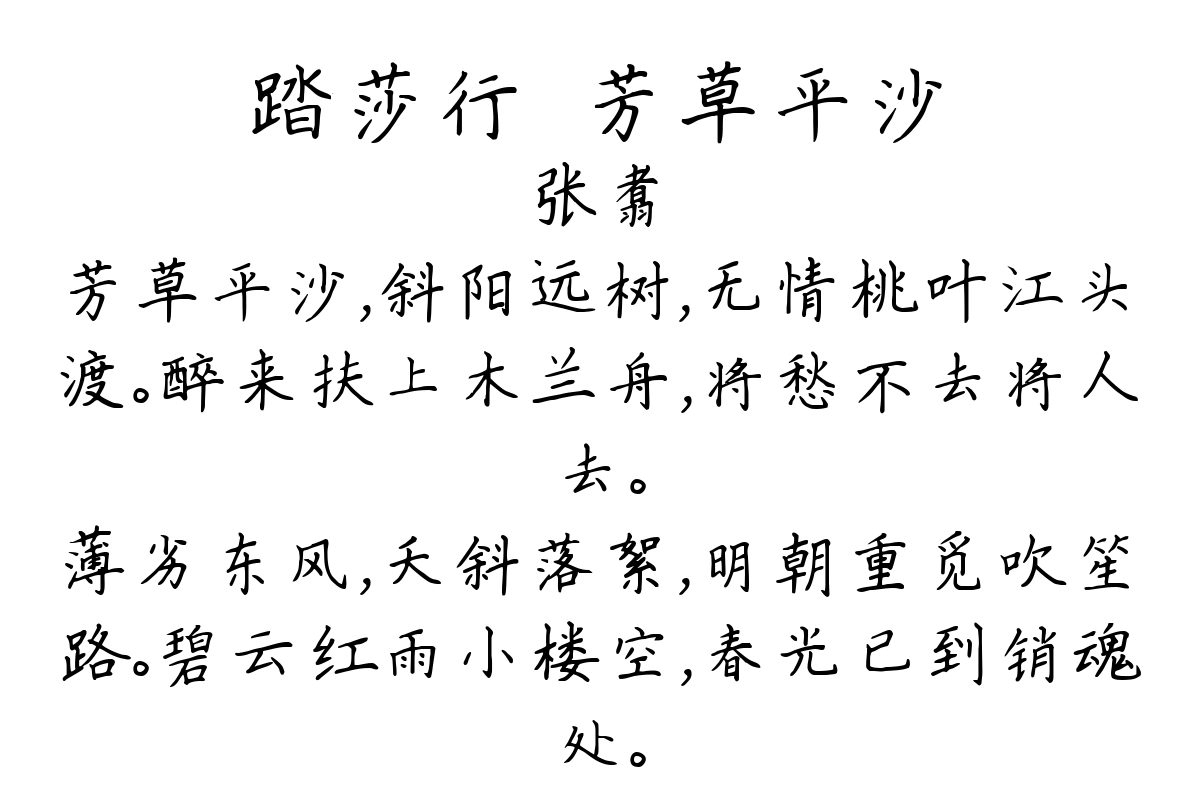 踏莎行 芳草平沙
张翥
芳草平沙,斜阳远树,无情桃叶江头
渡。醉来扶上木兰舟,将愁不去将人
去。
薄劣东风,夭斜落絮,明朝重觅吹笙
路。碧云红雨小楼空,春光已到销魂
处。